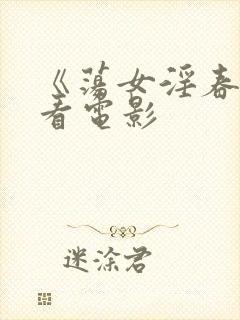 《蕩女淫春
看電影
迷涂君